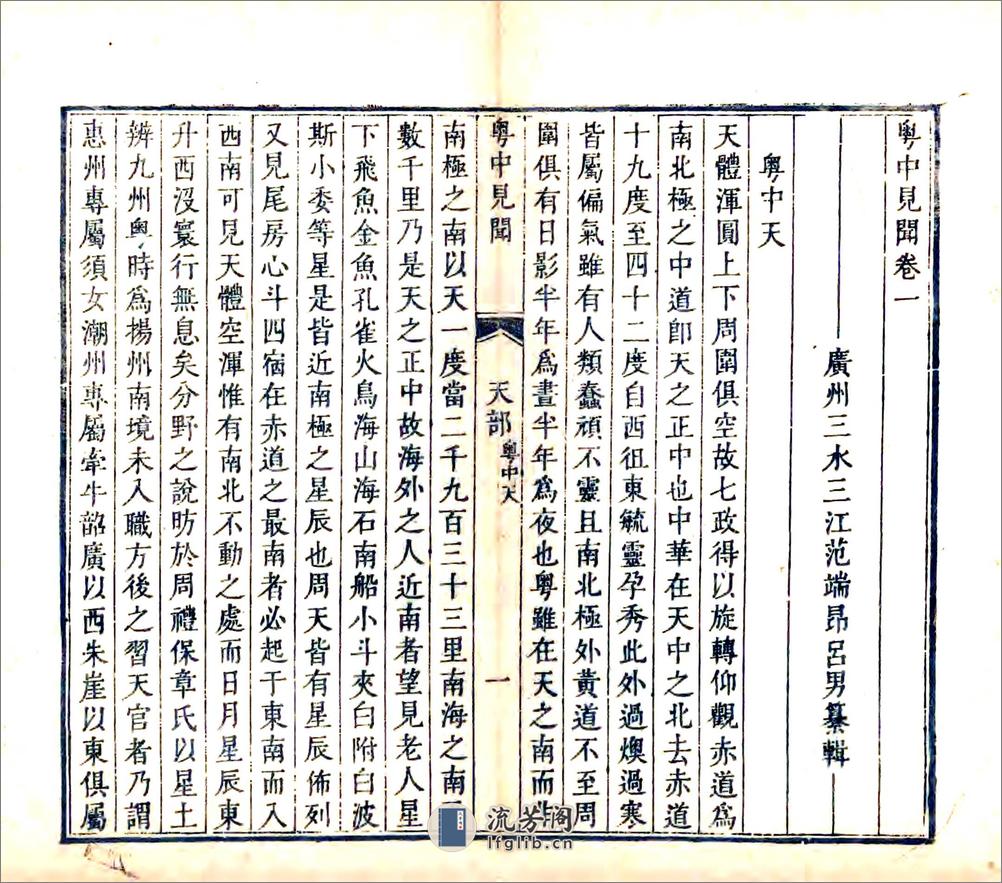 粵中見聞卷一
廣州三水三江范端昂呂男纂輯
粵中天
天體渾圓上下周圍俱空故七政得以旋轉仰觀赤道爲
南北極之中道卽天之正中也中華在天中之北去赤道
十九度至四十二度自西徂東毓靈孕秀此外過燠過寒
皆屬偏氣雖有人類蠢頑不靈且南北極外黃道不至周
圍俱有日影半年爲晝半年爲夜也粵雖在天之南而非
粵中見聞 天部 粵中天 一
南極之南以天一度當二千九百三十三里南海之南
數千里乃是天之正中故海外之人近南者望見老人星
下飛魚金魚孔雀火鳥海山海石南船小斗夾白附白波
斯小委等星是皆近南極之星辰也周天皆有星辰佈列
又見尾房心斗四宿在赤道之最南者必起于東南而入
西南可見天體空渾惟有南北不動之處而日月星辰東
升西沒寰行無息矣分野之說昉於周禮保章氏以星土
辨九州粵時爲揚州南境未入職方後之習天官者乃謂
惠州專屬須女潮州專屬牽牛韶廣以西朱崖以東俱屬
流芳阁
lfglib.cn